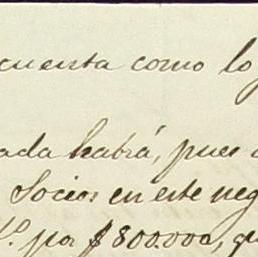 cuenta como lo
ada habrá, pues
Socios en este neg
por $800.000, qu